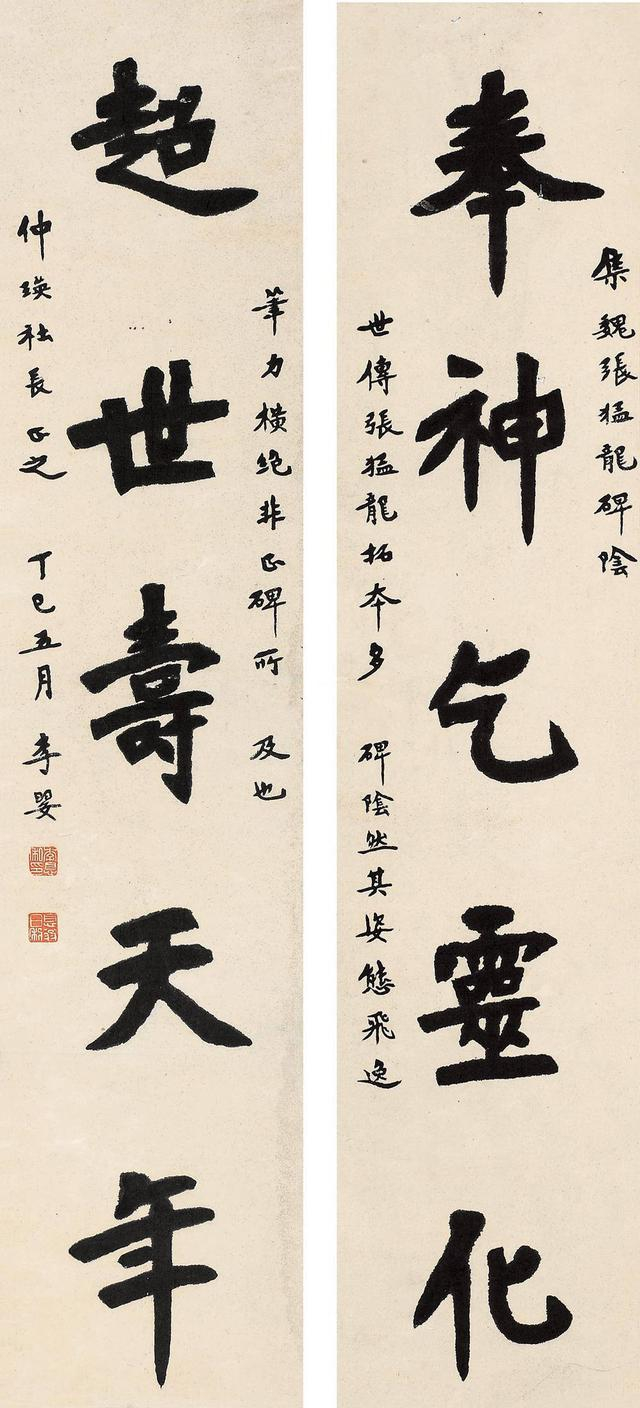 集魏張猛龍碑陰
奉神乞靈化
世傳張猛龍拓夲多 碑陰然其姿態飛逸
筆力橫絶非正碑所 及也
超世壽天年
仲瑛社長正之 丁巳五月 李